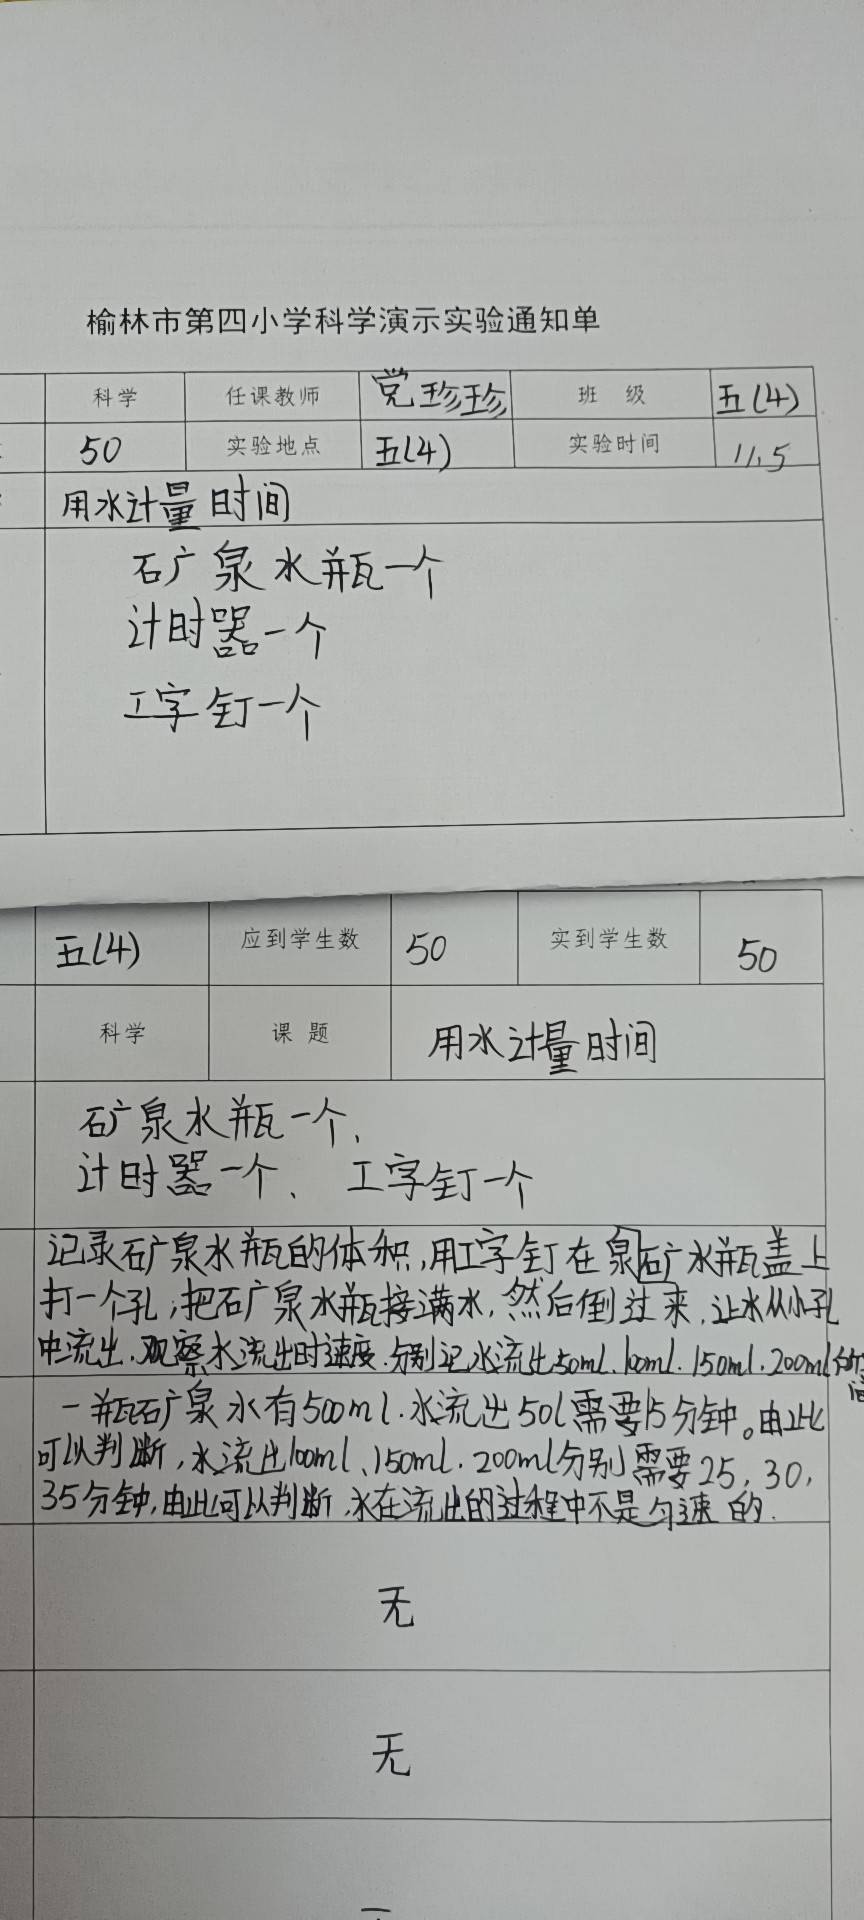 榆林市第四小学科学演示实验通知单
科学 任课教师 党珍珍 班 级 五(4)
50 实验地点 五(4) 实验时间 11.5
用水计量时间
石广泉水瓶一个
计时器一个
工字钉一个
五(4) 应到学生数 50 实到学生数 50
科学 课 题 用水计量时间
矿泉水瓶一个、
计时器一个、 工字钉一个
记录矿泉水瓶的体积,用工字钉在泉矿水瓶盖上
打一个孔,把矿泉水瓶接满水,然后倒过来,让水从小孔
中流出,观察水流出时速度.分别记水流出50ml.100ml.150ml.200ml
一瓶矿泉水有500ml.水流出50l需要15分钟。由此
可以判断,水流出100ml、150ml.200ml分别需要25,30,
35分钟,由此可以判断,水在流出的过程中不是匀速的.
无
无